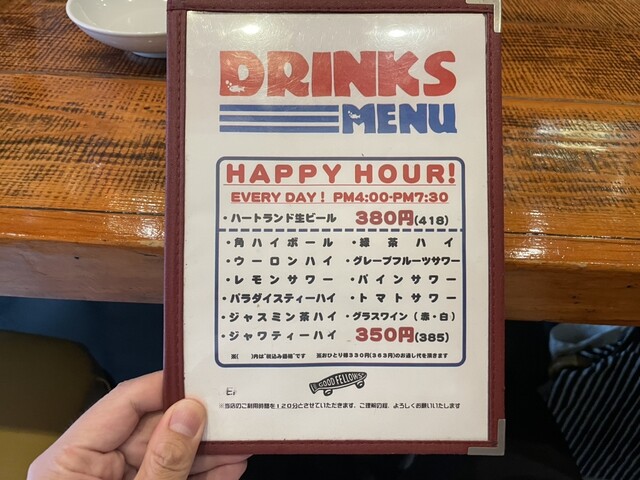 DRINKS
MENU
HAPPY HOUR!
EVERY DAY! PM4:00-PM7:30
・ハートランド生ビール 380円(418)
・角ハイボール ・緑茶ハイ
・ウーロンハイ ・グレープフルーツサワー
・レモンサワー ・パインサワー
・パラダイスティーハイ ・トマトサワー
・ジャスミン茶ハイ ・グラスワイン(赤・白)
・ジャワティーハイ 350円(385)
※( )内は"税込み価格"です ※おひとり様330円(363円)のお通し代を頂きます
GOOD FELLOWS
※当店のご利用時間を120分とさせていただきます。ご理解の程、よろしくお願いいたします